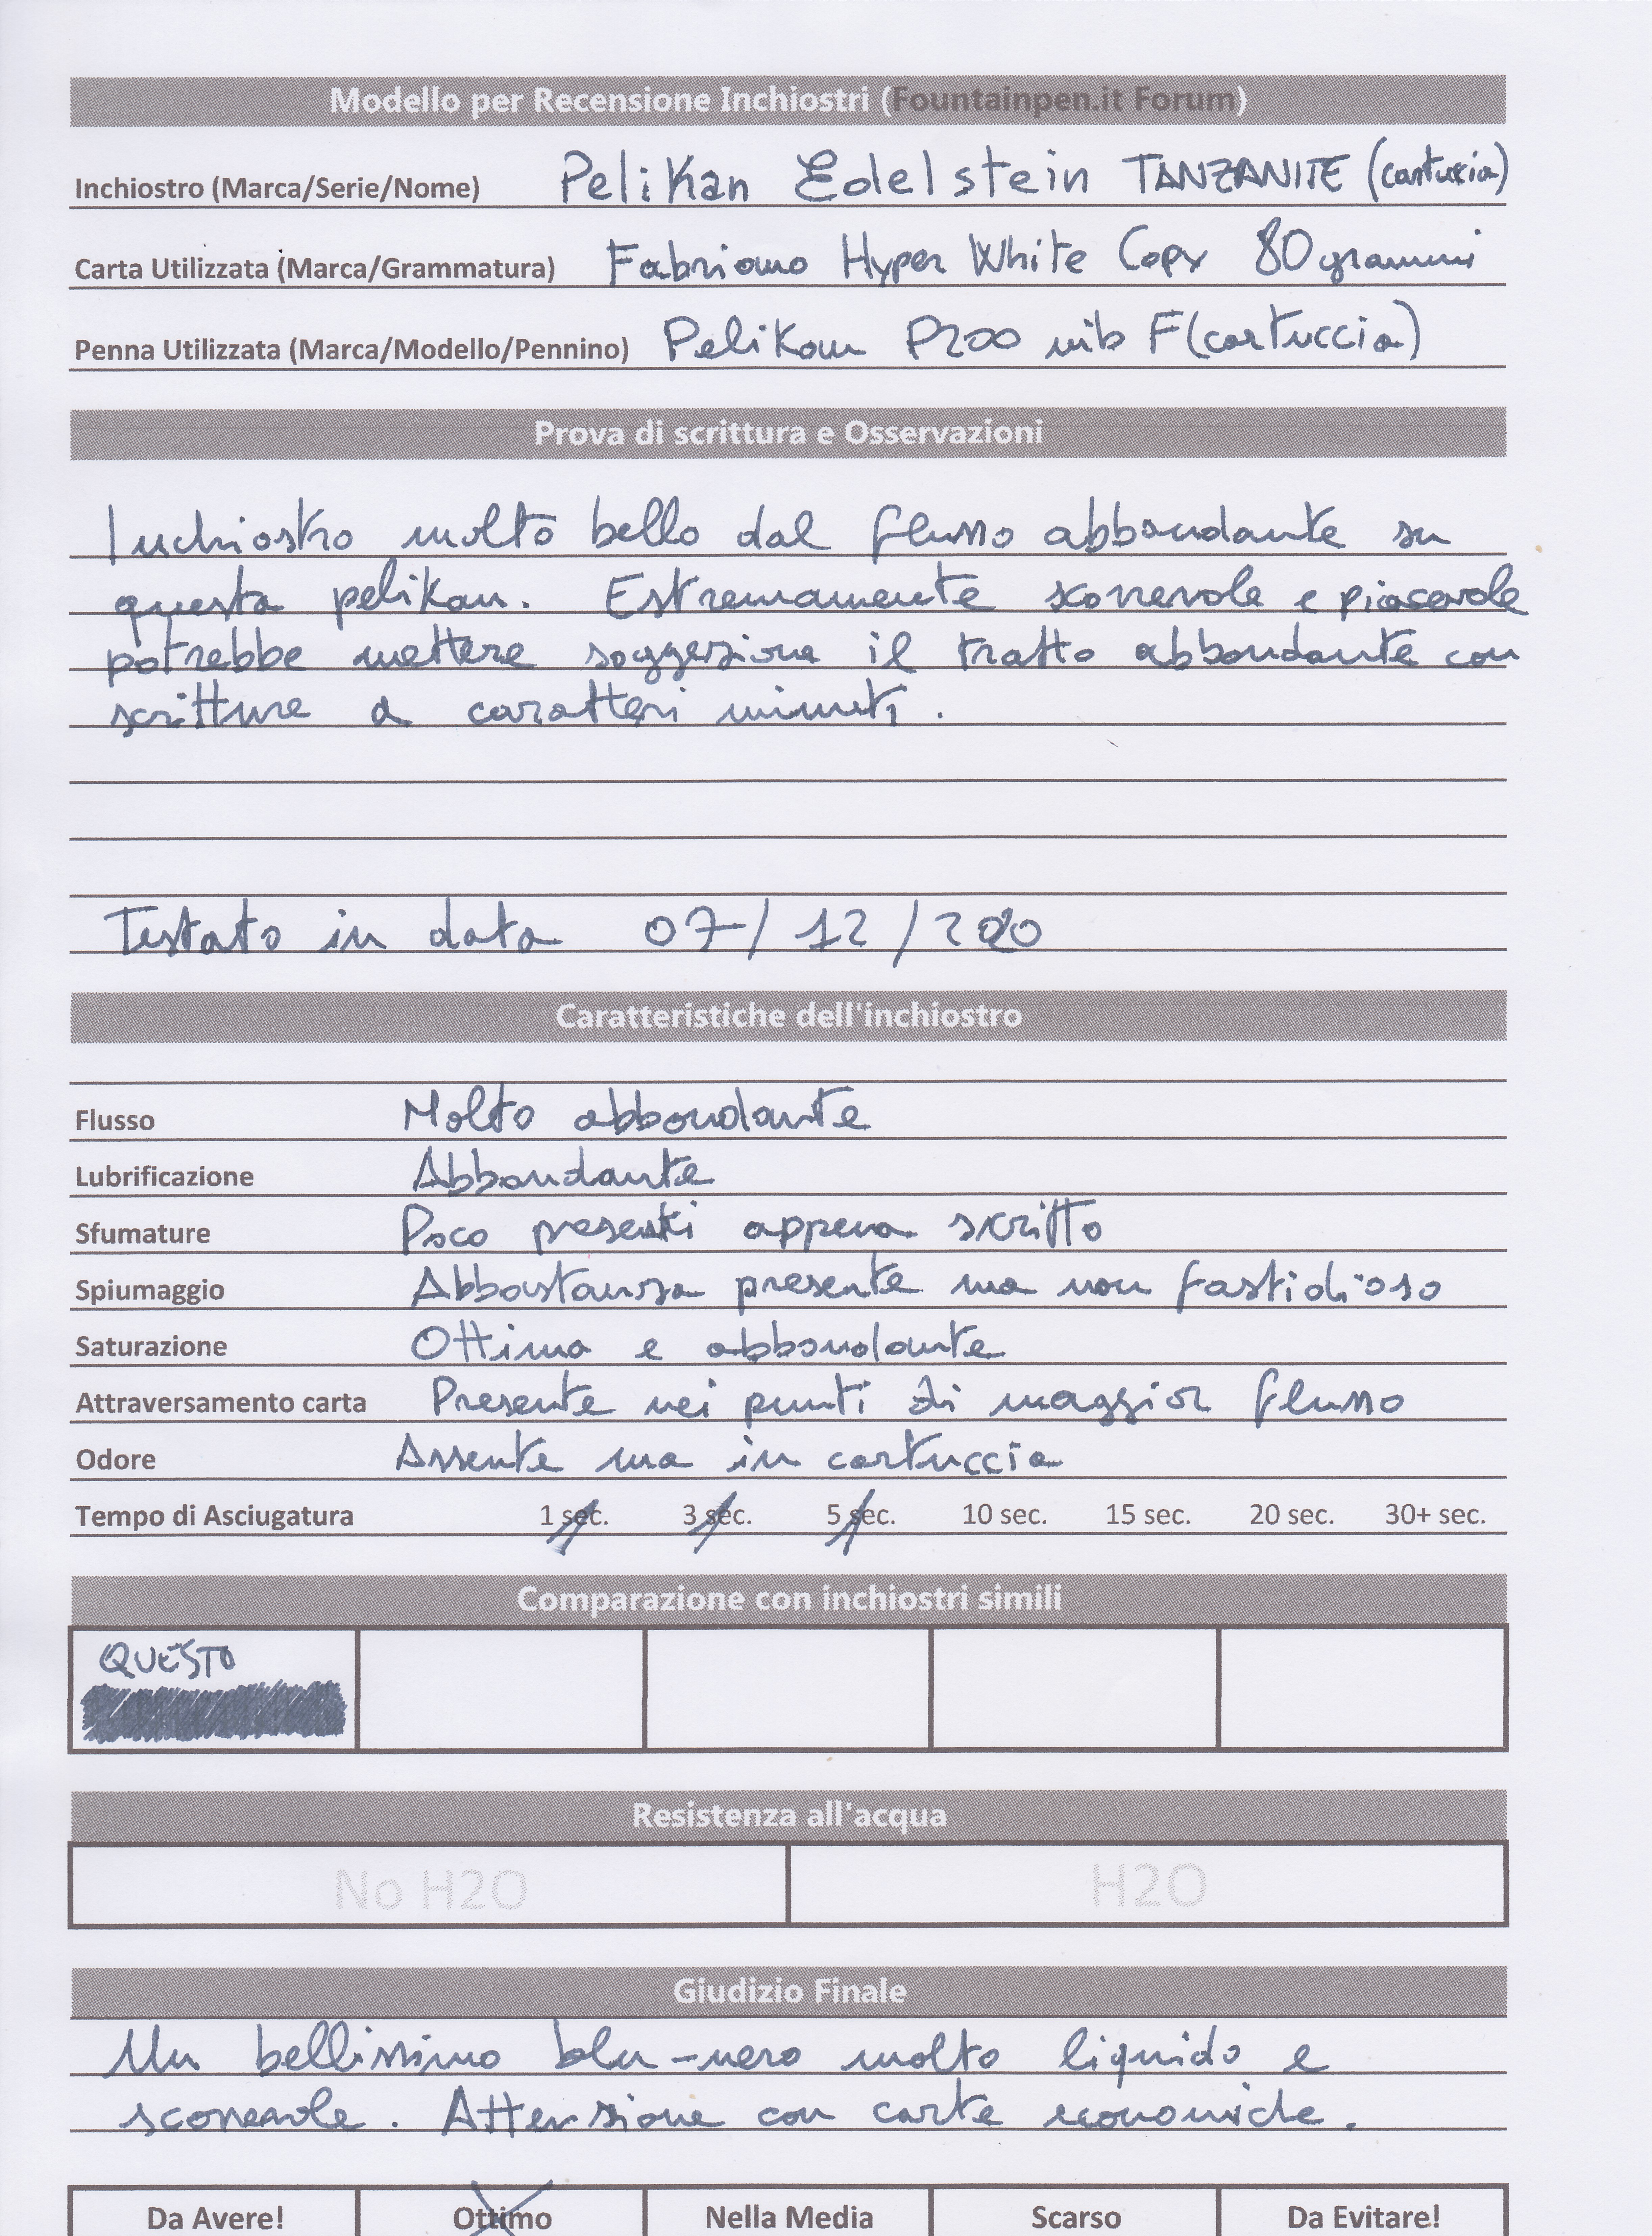 Modello per Recensione Inchiostri (Fountainpen.it Forum)
Inchiostro (Marca/Serie/Nome) Pelikan Edelstein TANZANITE (cartuccia)
Carta Utilizzata (Marca/Grammatura) Fabriano Hyper White Copy 80 grammi
Penna Utilizzata (Marca/Modello/Pennino) Pelikan P200 nib F (cartuccia)
Prova di scrittura e Osservazioni
Inchiostro molto bello dal flusso abbondante su
questa pelikan. Estremamente scorrevole e piacevole
potrebbe mettere soggezione il tratto abbondante con
scritture a caratteri minuti.
Testato in data 07/12/2020
Caratteristiche dell'inchiostro
Flusso Molto abbondante
Lubrificazione Abbondante
Sfumature Poco presenti appena scritto
Spiumaggio Abbastanza presente ma non fastidioso
Saturazione Ottima e abbondante
Attraversamento carta Presente nei punti di maggior flusso
Odore Assente ma in cartuccia
Tempo di Asciugatura 1 sec. 3 sec. 5 sec. 10 sec. 15 sec. 20 sec. 30+ sec.
Comparazione con inchiostri simili
QUESTO
Resistenza all'acqua
No H2O H2O
Giudizio Finale
Un bellissimo blu-nero molto liquido e
scorrevole. Attenzione con carte economiche.
Da Avere! Ottimo Nella Media Scarso Da Evitare!